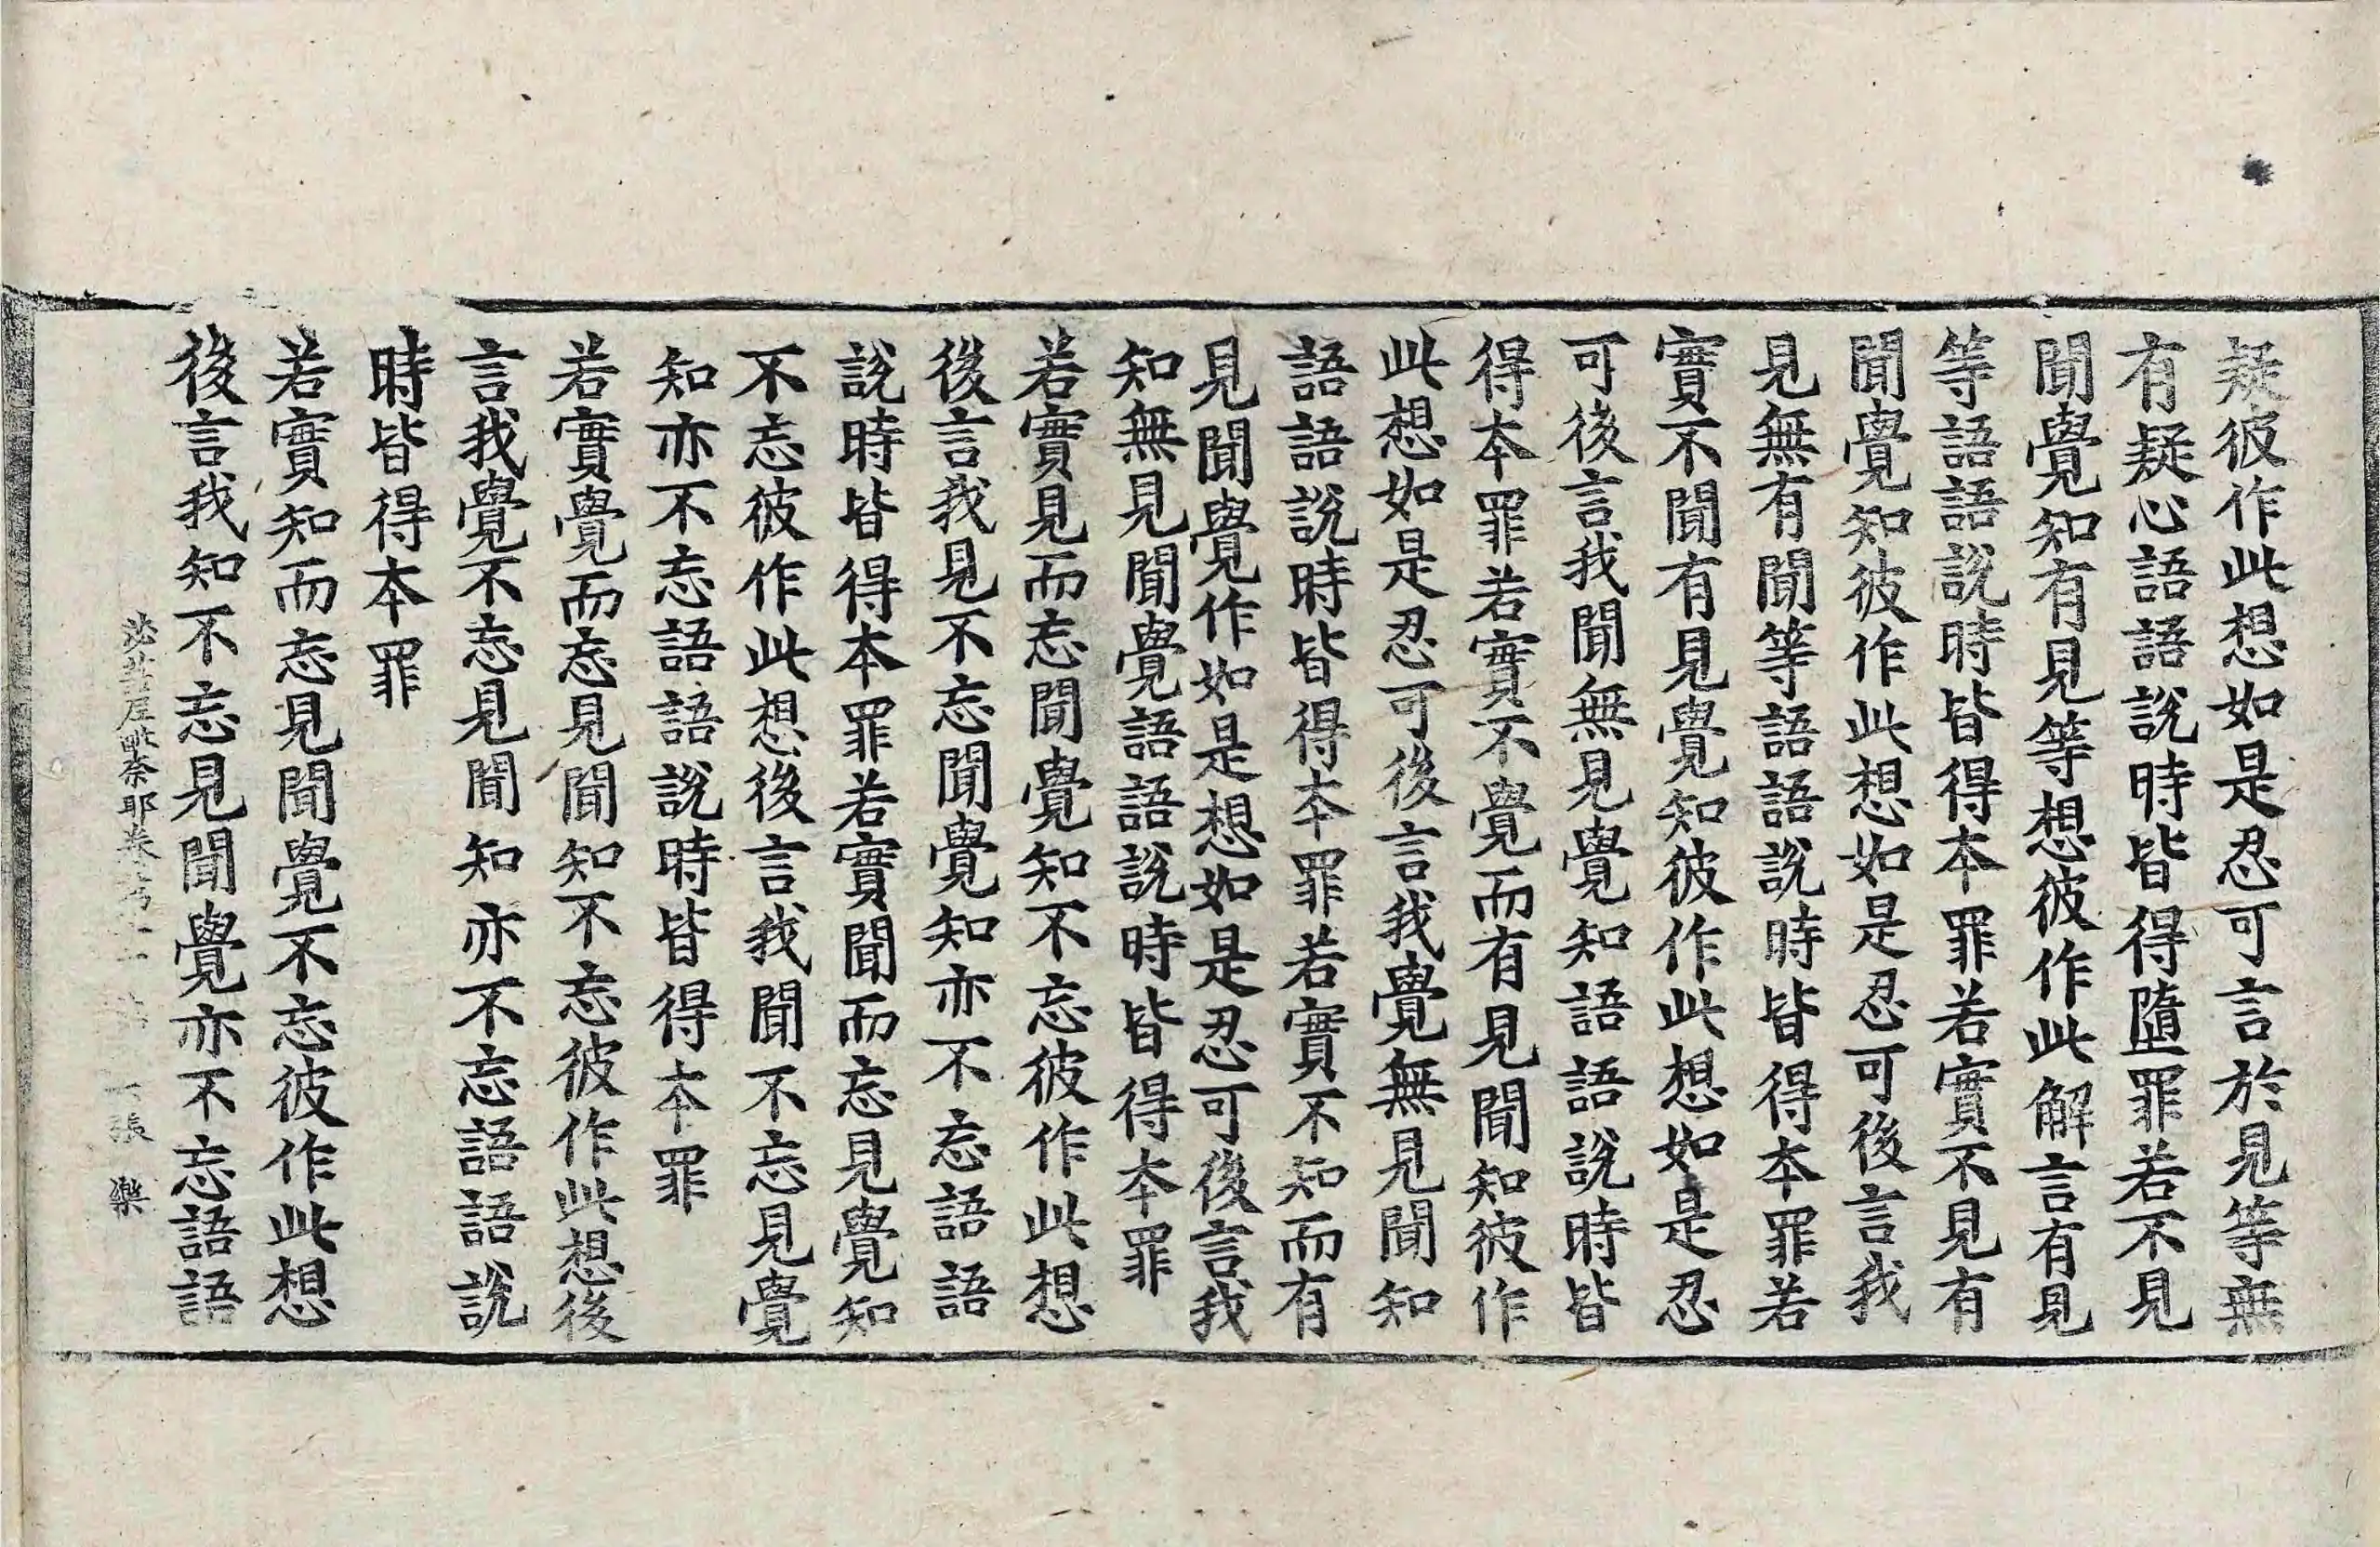 疑彼作此想如是忍可言於見等無
有疑心語語說時皆得墮罪若不見
聞覺知有見等想彼作此解言有見
等語語說時皆得本罪若實不見有
聞覺知彼作此想如是忍可後言我
見無有聞等語語說時皆得本罪若
實不聞有見覺知彼作此想如是忍
可後言我聞無見覺知語語說時皆
得本罪若實不覺而有見聞知彼作
此想如是忍可後言我覺無見聞知
語語說時皆得本罪若實不知而有
見聞覺作如是想如是忍可後言我
知無見聞覺語語說時皆得本罪
若實見而忘聞覺知不忘彼作此想
後言我見不忘聞覺知亦不忘語語
說時皆得本罪若實聞而忘見覺知
不忘彼作此想後言我聞不忘見覺
知亦不忘語語說時皆得本罪
若實覺而忘見聞知不忘彼作此想後
言我覺不忘見聞知亦不忘語語說
時皆得本罪
若實知而忘見聞覺不忘彼作此想
後言我知不忘見聞覺亦不忘語語
苾芻尼毗奈耶卷 張 樂